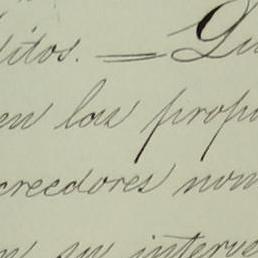 ditos. = Qu
en las propo
creedores nom
n su interve